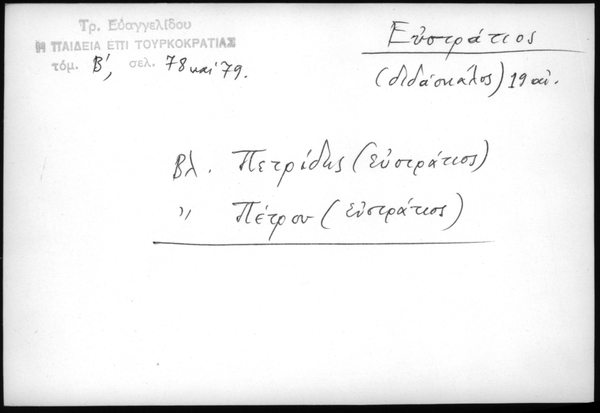 Τρ. Εὐαγγελίδου
Η ΠΑΙΔΕΙΑ ΕΠΙ ΤΟΥΡΚΟΚΡΑΤΙΑΣ
τόμ. Β', σελ. 78 και 79.
Εὐστράτιος
(διδάσκαλος) 19 αἰ.
Βλ. Πετρίδης (Εὐστράτιος)
〃 Πέτρου (Εὐστράτιος)